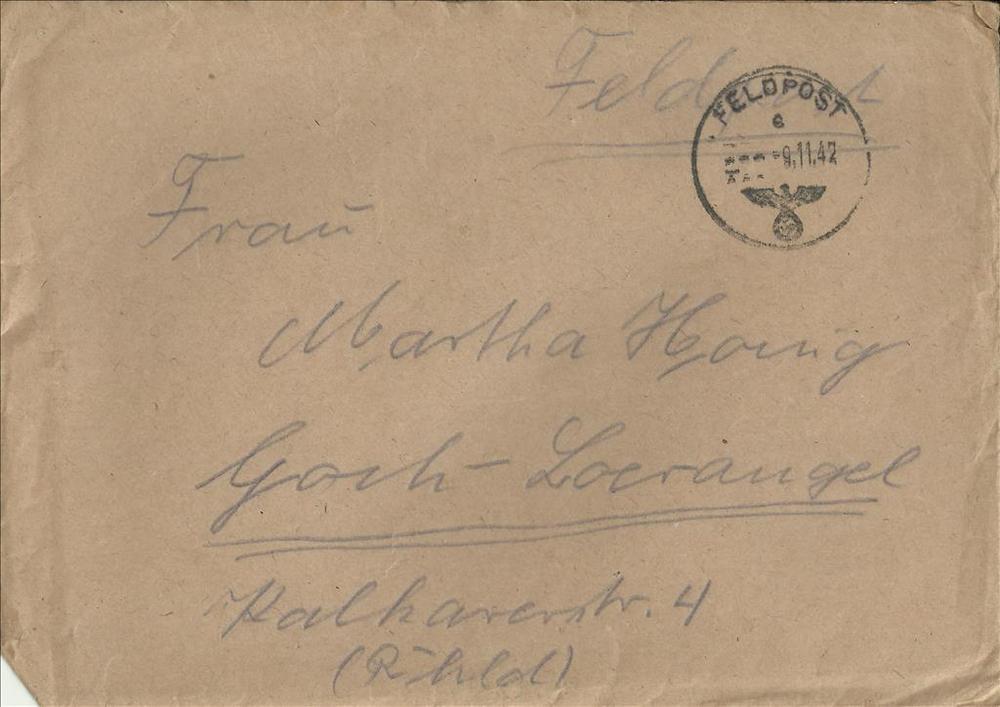 Feldpost
FELDPOST
e
-9.11.42
Frau
Martha Honig
Goch - Locrangel
Kalkarerstr. 4
(Rhld)